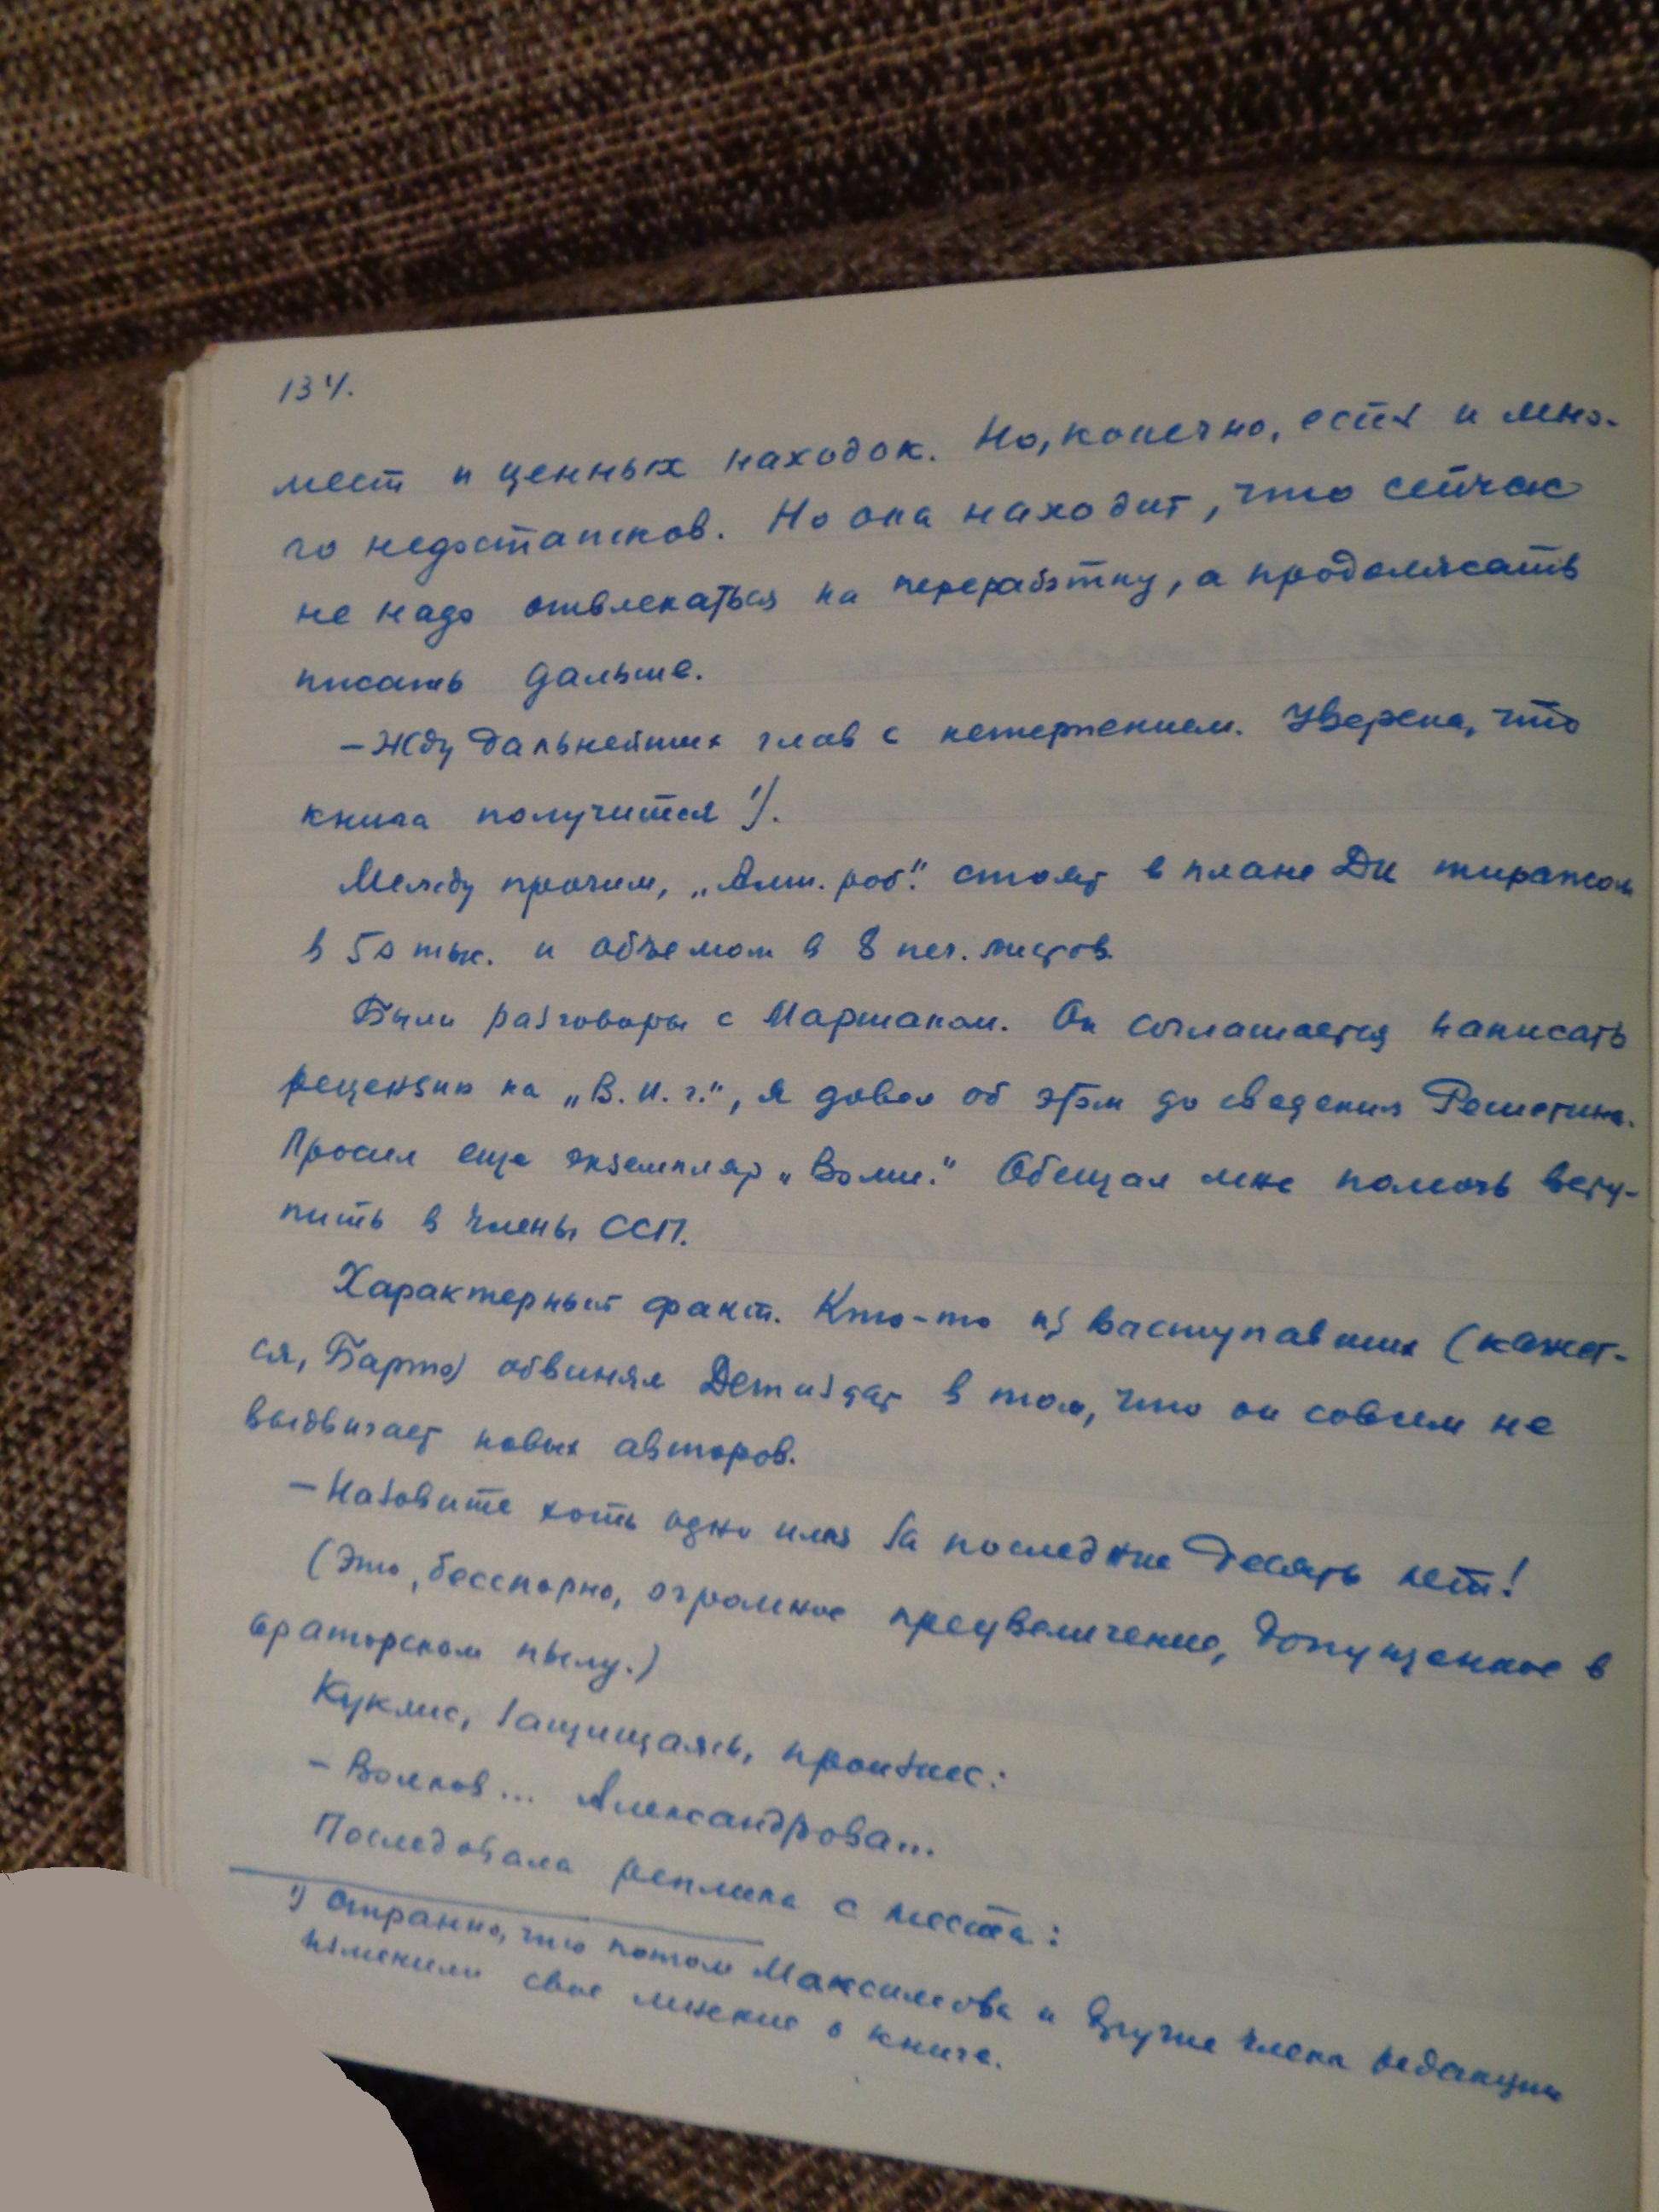 134.
мест и ценных находок. Но, конечно, есть и мно-
го недостатков. Но она находит, что сейчас
не надо отвлекаться на переработку, а продолжать
писать дальше.
— Жду дальнейших глав с нетерпением. Уверена, что
книга получится ¹).
Между прочим, „Алт. роб." стоят в плане ДИ тиражом
в 50 тыс. и объемом в 8 печ. листов.
Были разговоры с Маршаком. Он соглашается написать
рецензию на „В. И. г.", я довел об этом до сведения
Просил еще экземпляр „Волш." Обещал мне помочь всту-
пить в члены ССП.
Характерный факт. Кто-то из выступавших (кажет-
ся, Барто) обвинял Детиздат в том, что он совсем не
выдвигает новых авторов.
— Назовите хоть одно имя за последние десять лет!
(Это, бесспорно, огромное преувеличение, допущенное в
ораторском пылу.)
Куклис, защищаясь, произнес:
— Волков... Александрова...
Последовала реплика с места:
¹) Странно, что потом Максимова и другие члены редакции
изменили свое мнение о книге.